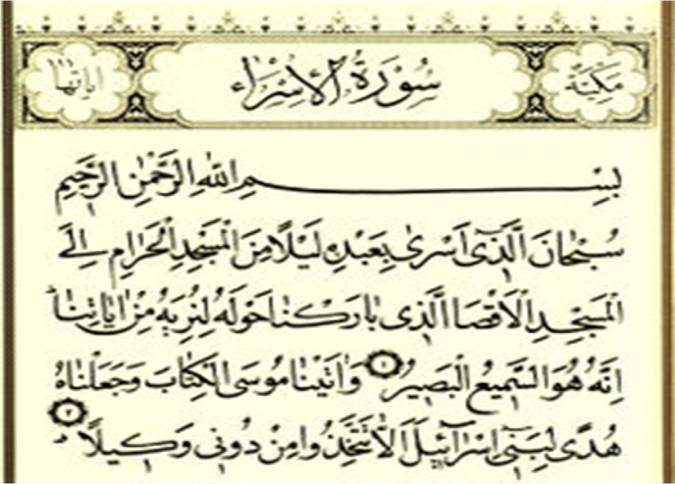 مَكِّيَّةٌ سُورَةُ الْاِسْرَاءِ اٰيَاتُهَا
بِسْمِ اللّٰهِ الرَّحْمٰنِ الرَّحٖيمِ
سُبْحَانَ الَّذٖٓى اَسْرٰى بِعَبْدِهٖ لَيْلًا مِنَ الْمَسْجِدِ الْحَرَامِ اِلَى
الْمَسْجِدِ الْاَقْصَا الَّذٖى بَارَكْنَا حَوْلَهُ لِنُرِيَهُ مِنْ اٰيَاتِنَاؕ
اِنَّهُ هُوَ السَّمٖيعُ الْبَصٖيرُ ١ وَاٰتَيْنَا مُوسَى الْكِتَابَ وَجَعَلْنَاهُ
هُدًى لِبَنٖٓى اِسْرَآئٖلَ اَلَّا تَتَّخِذُوا مِنْ دُونٖى وَكٖيلًاؕ ٢